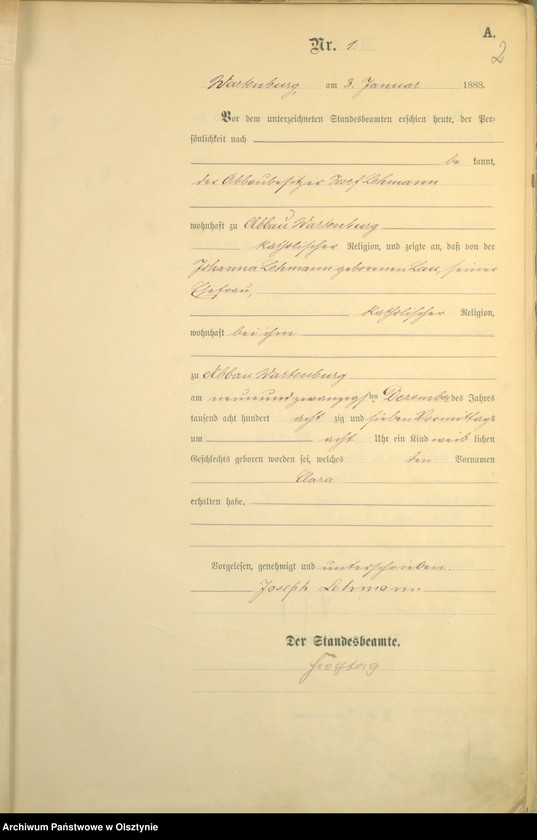 A.
2
Nr. 1
Wartenburg, am 3. Januar 1888.
Vor dem unterzeichneten Standesbeamten erschien heute, der Per-
sönlichkeit nach
be kannt,
der Abbaubesitzer Josef Lehmann
wohnhaft zu Abbau Wartenburg
katholischer Religion, und zeigte an, daß von der
Johanna Lehmann geborenen Lau, seiner
Ehefrau,
katholischer Religion,
wohnhaft bei ihm
zu Abbau Wartenburg
am neunundzwanzigsten Dezember des Jahres
tausend acht hundert acht zig und sieben Vormittags
um acht Uhr ein Kind weib lichen
Geschlechts geboren worden sei, welches den Vornamen
Clara
erhalten habe.
Vorgelesen, genehmigt und unterschrieben.
Joseph Lehmann
Der Standesbeamte.
Archiwum Państwowe w Olsztynie